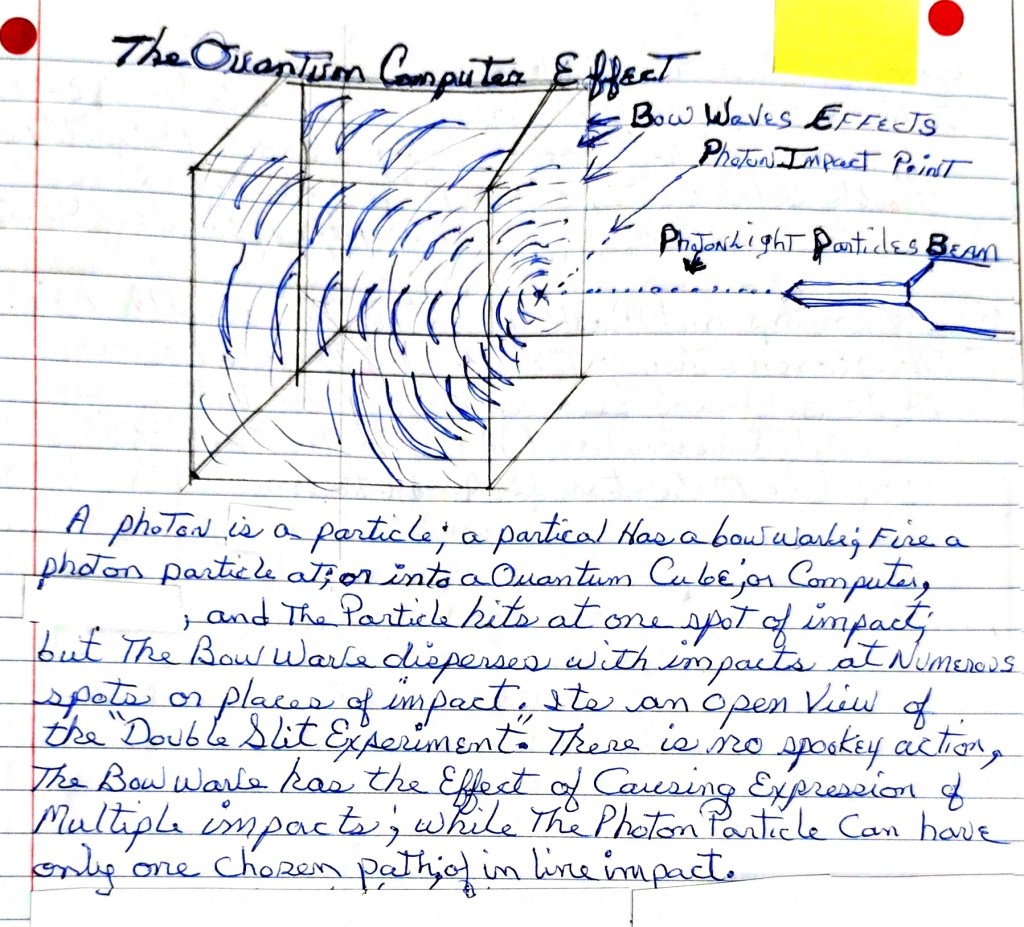 The Quantum Computer Effect
Bow Waves Effects
Photon Impact Point
Photon Light Particles Beam
A photon is a particle; a partical Has a bow wave; Fire a
photon particle at; or into a Quantum Cube; or Computer,
, and The Particle hits at one spot of impact;
but The Bow Wave disperses with impacts at Numerous
spots or places of impact. Its an open View of
the "Double Slit Experiment." There is no spookey action,
The Bow Wave has the Effect of Causing Expression of
Multiple impacts; while The Photon Particle Can have
only one chosen path; of in line impact.